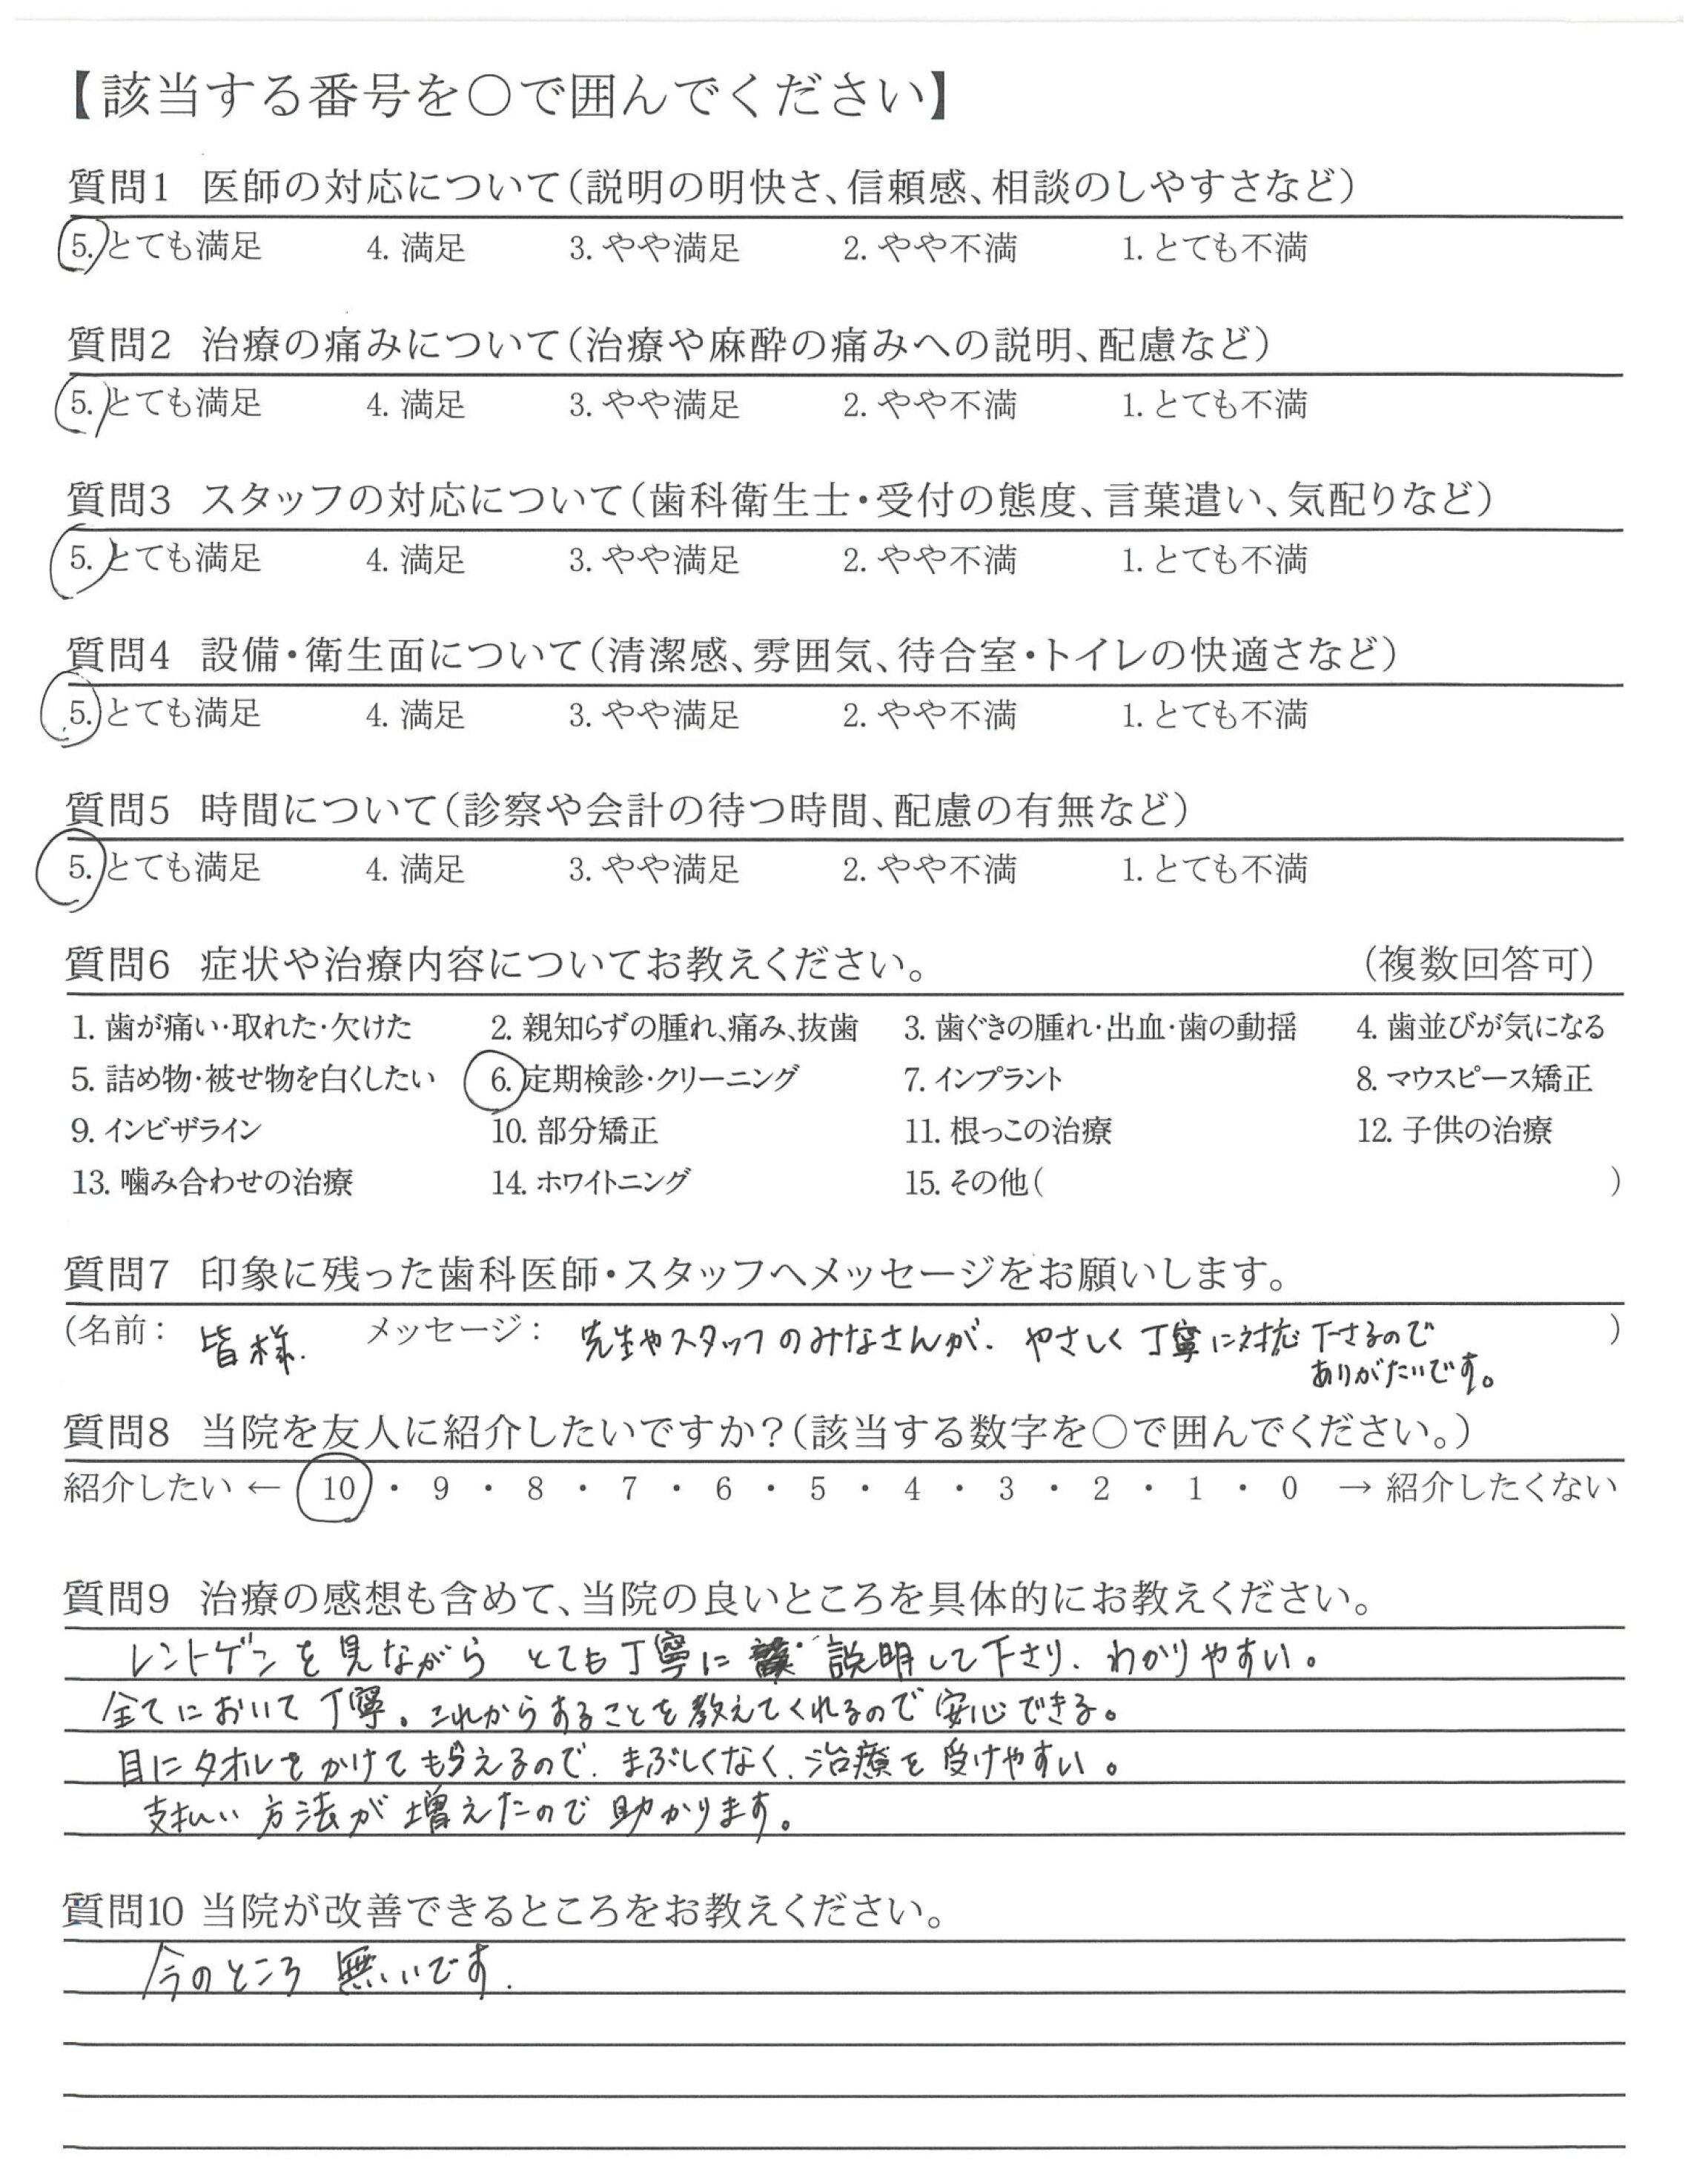 【該当する番号を○で囲んでください】
質問1 医師の対応について(説明の明快さ、信頼感、相談のしやすさなど)
5. とても満足 4. 満足 3. やや満足 2. やや不満 1. とても不満
質問2 治療の痛みについて(治療や麻酔の痛みへの説明、配慮など)
5. とても満足 4. 満足 3. やや満足 2. やや不満 1. とても不満
質問3 スタッフの対応について(歯科衛生士・受付の態度、言葉遣い、気配りなど)
5. とても満足 4. 満足 3. やや満足 2. やや不満 1. とても不満
質問4 設備・衛生面について(清潔感、雰囲気、待合室・トイレの快適さなど)
5. とても満足 4. 満足 3. やや満足 2. やや不満 1. とても不満
質問5 時間について(診察や会計の待つ時間、配慮の有無など)
5. とても満足 4. 満足 3. やや満足 2. やや不満 1. とても不満
質問6 症状や治療内容についてお教えください。 (複数回答可)
1. 歯が痛い・取れた・欠けた 2. 親知らずの腫れ、痛み、抜歯 3. 歯ぐきの腫れ・出血・歯の動揺 4. 歯並びが気になる
5. 詰め物・被せ物を白くしたい 6. 定期検診・クリーニング 7. インプラント 8. マウスピース矯正
9. インビザライン 10. 部分矯正 11. 根っこの治療 12. 子供の治療
13. 噛み合わせの治療 14. ホワイトニング 15. その他( )
質問7 印象に残った歯科医師・スタッフへメッセージをお願いします。
(名前: 皆様. メッセージ: 先生やスタッフのみなさんが、やさしく丁寧に対応下さるので )
ありがたいです。
質問8 当院を友人に紹介したいですか?(該当する数字を○で囲んでください。)
紹介したい ← 10 ・ 9 ・ 8 ・ 7 ・ 6 ・ 5 ・ 4 ・ 3 ・ 2 ・ 1 ・ 0 → 紹介したくない
質問9 治療の感想も含めて、当院の良いところを具体的にお教えください。
レントゲンを見ながら とても丁寧に 説明して下さり、わかりやすい。
全てにおいて丁寧。これからあることを教えてくれるので安心できる。
目にタオルをかけてもらえるので、まぶしくなく、治療を受けやすい。
支払い方法が増えたので助かります。
質問10 当院が改善できるところをお教えください。
今のところ 無いです.